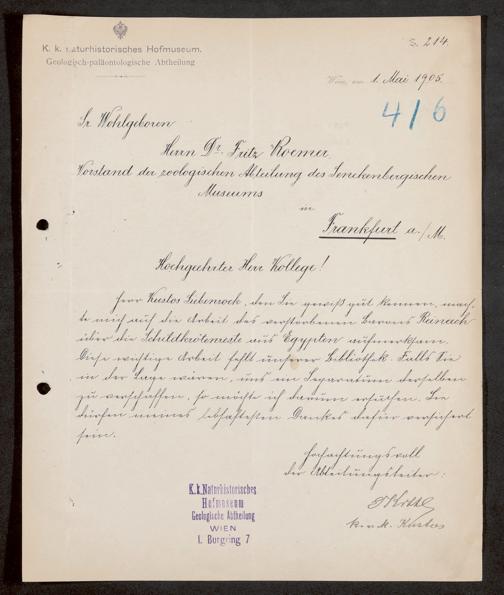 K. k. naturhistorisches Hofmuseum.
Geologisch-paläontologische Abtheilung
Z. 214
Wien, am 1. Mai 1905.
416
Sr. Wohlgeboren
Herrn Dr. Fritz Roemer
Vorstand der zoologischen Abteilung des Senckenbergischen
Museums
in
Frankfurt a./M.
Hochgeehrter Herr Kollege!
Herr Kustos Siebenrock, den Sie gewiß gut kennen, mach-
te mich auf die Arbeit des verstorbenen Barons Reinach
über die Schildkrötenreste aus Egypten aufmerksam.
Diese wichtige Arbeit fehlt unserer Bibliothek. Falls Sie
in der Lage wären, uns ein Separatum derselben
zu verschaffen, so möchte ich darum ersuchen. Sie
dürfen meines lebhaftesten Dankes dafür versichert
sein.
Hochachtungsvoll
der Abteilungsleiter:
Kittl
k. u. k. Kustos
K. k. Naturhistorisches
Hofmuseum
Geologische Abtheilung
WIEN
I. Burgring 7